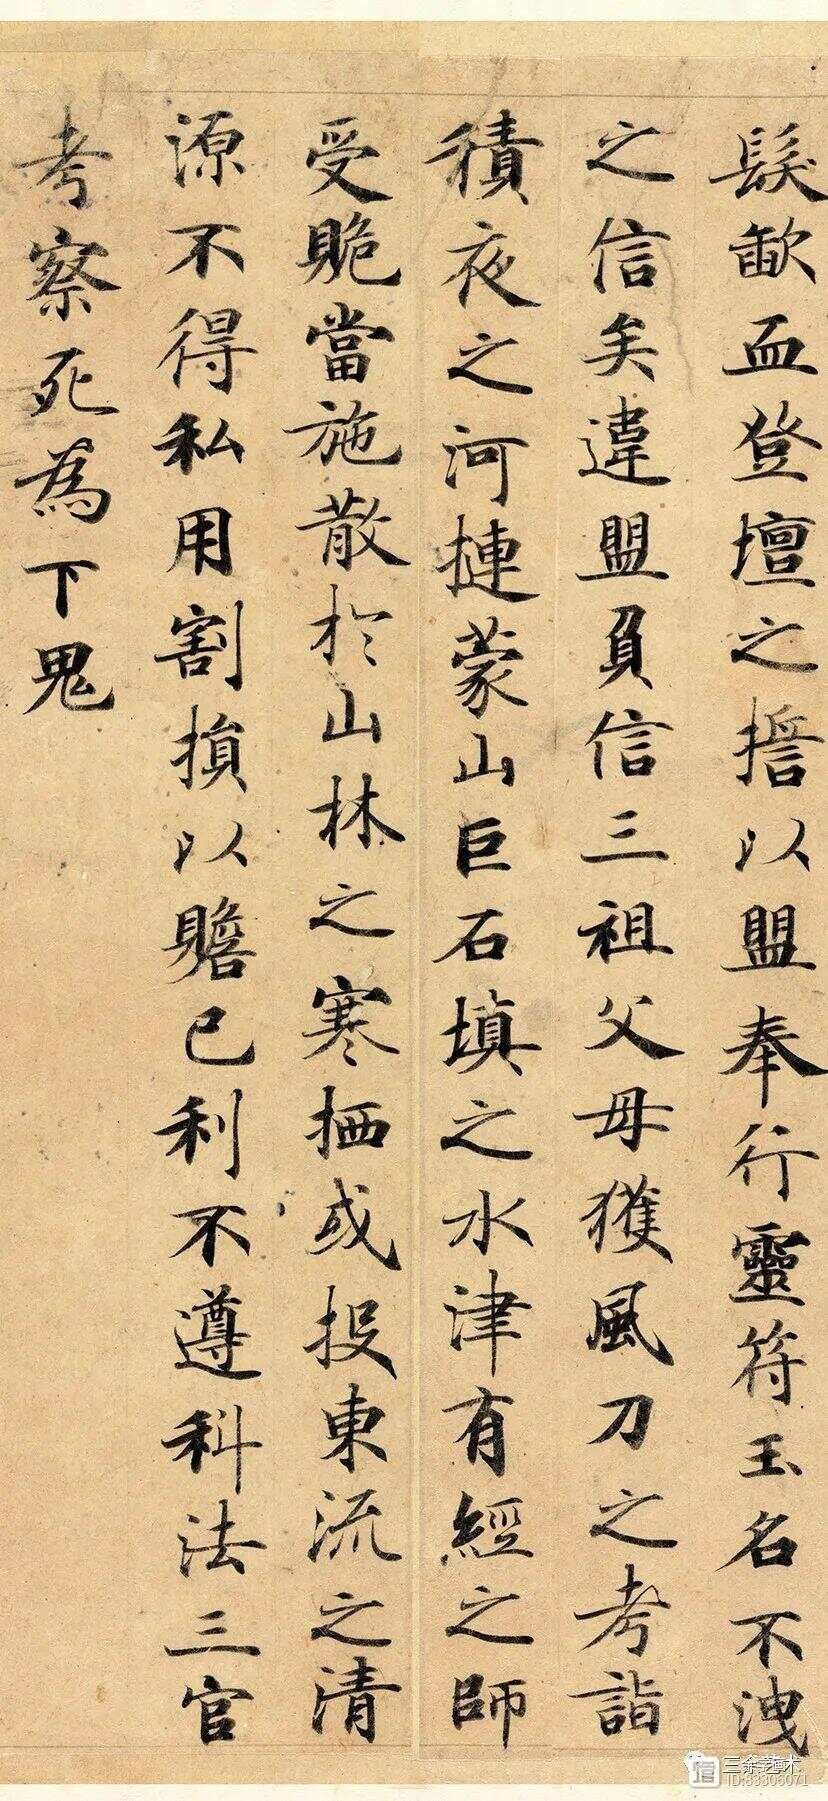 髮歃血登壇之擔以盟奉行靈符玉名不洩
之信矣違盟負信三祖父母獲風刀之考詣
積夜之河摙蒙山巨石填之水津有經之師
受貤當施散於山林之寒栖或投東流之清
源不得私用割損以贍己利不遵科法三官
考察死為下鬼
三余艺术
ID:33305071